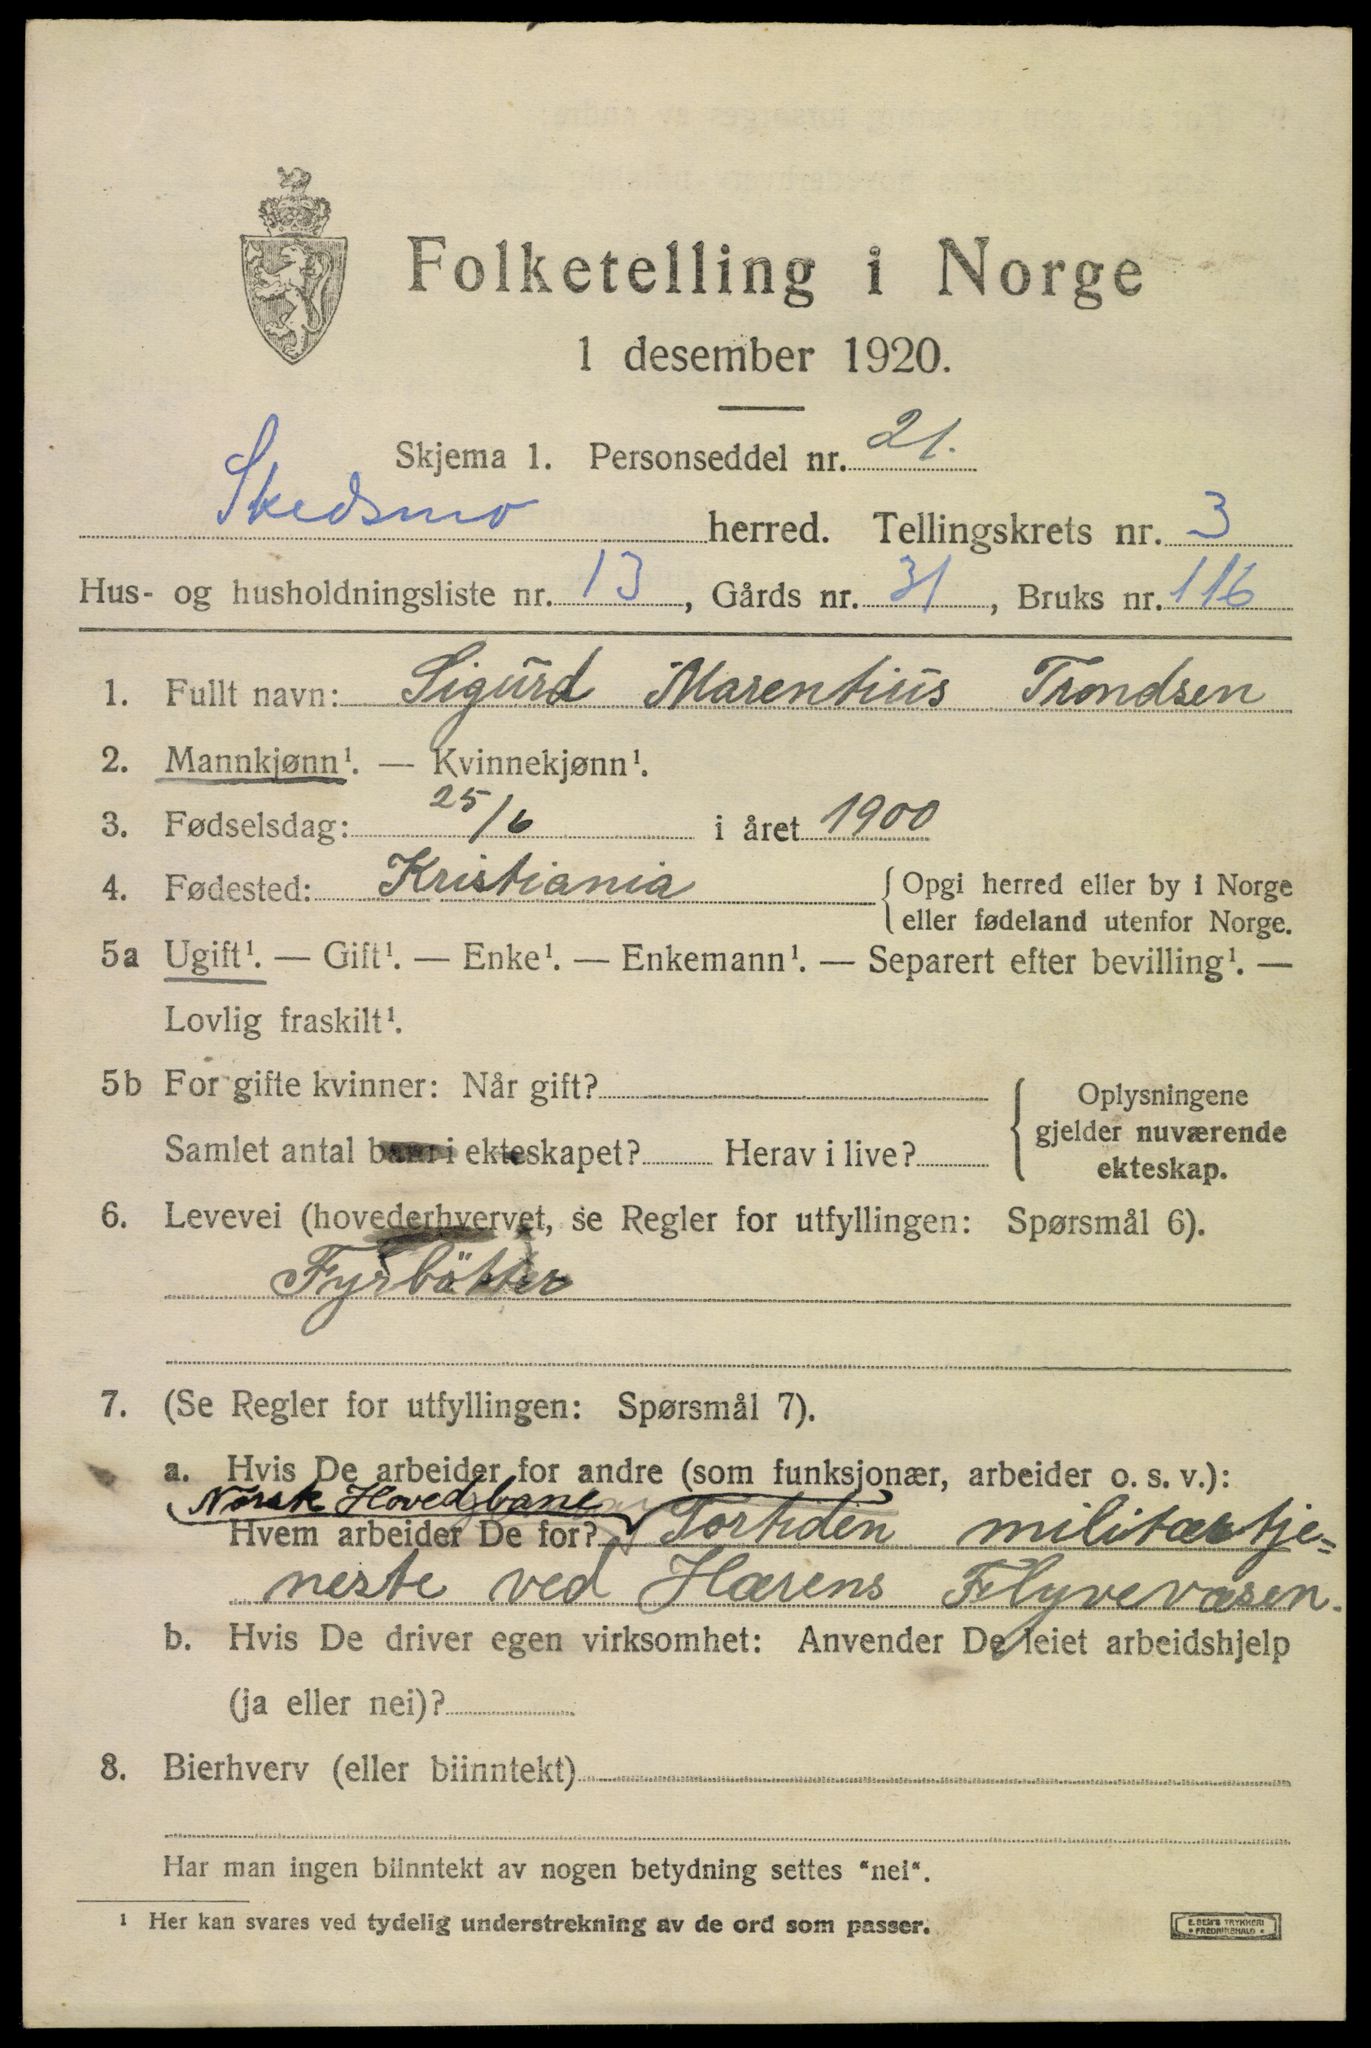 Folketelling i Norge
1 desember 1920.
Skjema 1. Personseddel nr. 21.
Skedsmo herred. Tellingskrets nr. 3
Hus- og husholdningsliste nr. 13, Gårds nr. 31, Bruks nr. 116
1. Fullt navn: Sigurd Marentius Trondsen
2. Mannkjønn¹. — Kvinnekjønn¹.
3. Fødselsdag: 25/6 i året 1900
4. Fødested: Kristiania { Opgi herred eller by i Norge
eller fødeland utenfor Norge.
5a Ugift¹. — Gift¹. — Enke¹. — Enkemann¹. — Separert efter bevilling¹. —
Lovlig fraskilt¹.
5b For gifte kvinner: Når gift?
Samlet antal barn i ekteskapet? Herav i live?
Oplysningene
gjelder nuværende
ekteskap.
6. Levevei (hovederhvervet, se Regler for utfyllingen: Spørsmål 6).
Fyrbøter
7. (Se Regler for utfyllingen: Spørsmål 7).
a. Hvis De arbeider for andre (som funksjonær, arbeider o. s. v.):
Norsk Hovedbane
Hvem arbeider De for? Fortiden militærtje=
neste ved Hærens Flyvevæsen.
b. Hvis De driver egen virksomhet: Anvender De leiet arbeidshjelp
(ja eller nei)?
8. Bierhverv (eller biinntekt)
Har man ingen biinntekt av nogen betydning settes "nei".
¹ Her kan svares ved tydelig understrekning av de ord som passer.
E. SEM'S TRYKKERI
FREDRIKSHALD